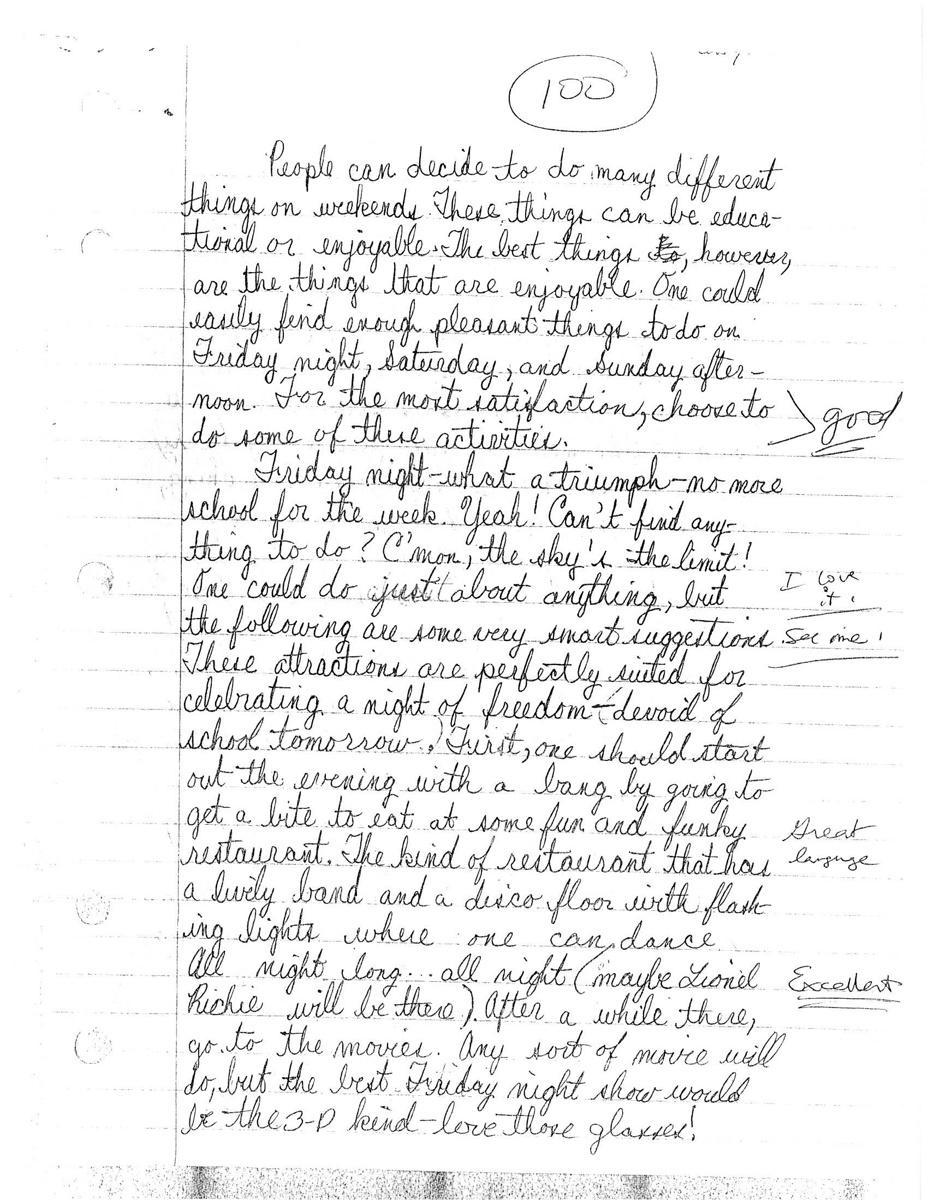 100
People can decide to do many different
things on weekends. These things can be educa-
tional or enjoyable. The best things to, however,
are the things that are enjoyable. One could
easily find enough pleasant things to do on
Friday night, Saturday, and Sunday after-
noon. For the most satisfaction, choose to
do some of these activities.
good
Friday night-what a triumph-no more
school for the week. Yeah! Can't find any-
thing to do? C'mon, the sky's the limit!
One could do just about anything, but
the following are some very smart suggestions.
I love
it!
See me!
These attractions are perfectly suited for
celebrating a night of freedom-(devoid of
school tomorrow.) First, one should start
out the evening with a bang by going to
get a bite to eat at some fun and funky
restaurant. The kind of restaurant that has
Great
language
a lively band and a disco floor with flash-
ing lights where one can dance
All night long... all night (maybe Lionel
Richie will be there). After a while there,
Excellent
go to the movies. Any sort of movie will
do, but the best Friday night show would
be the 3-D kind-love those glasses!